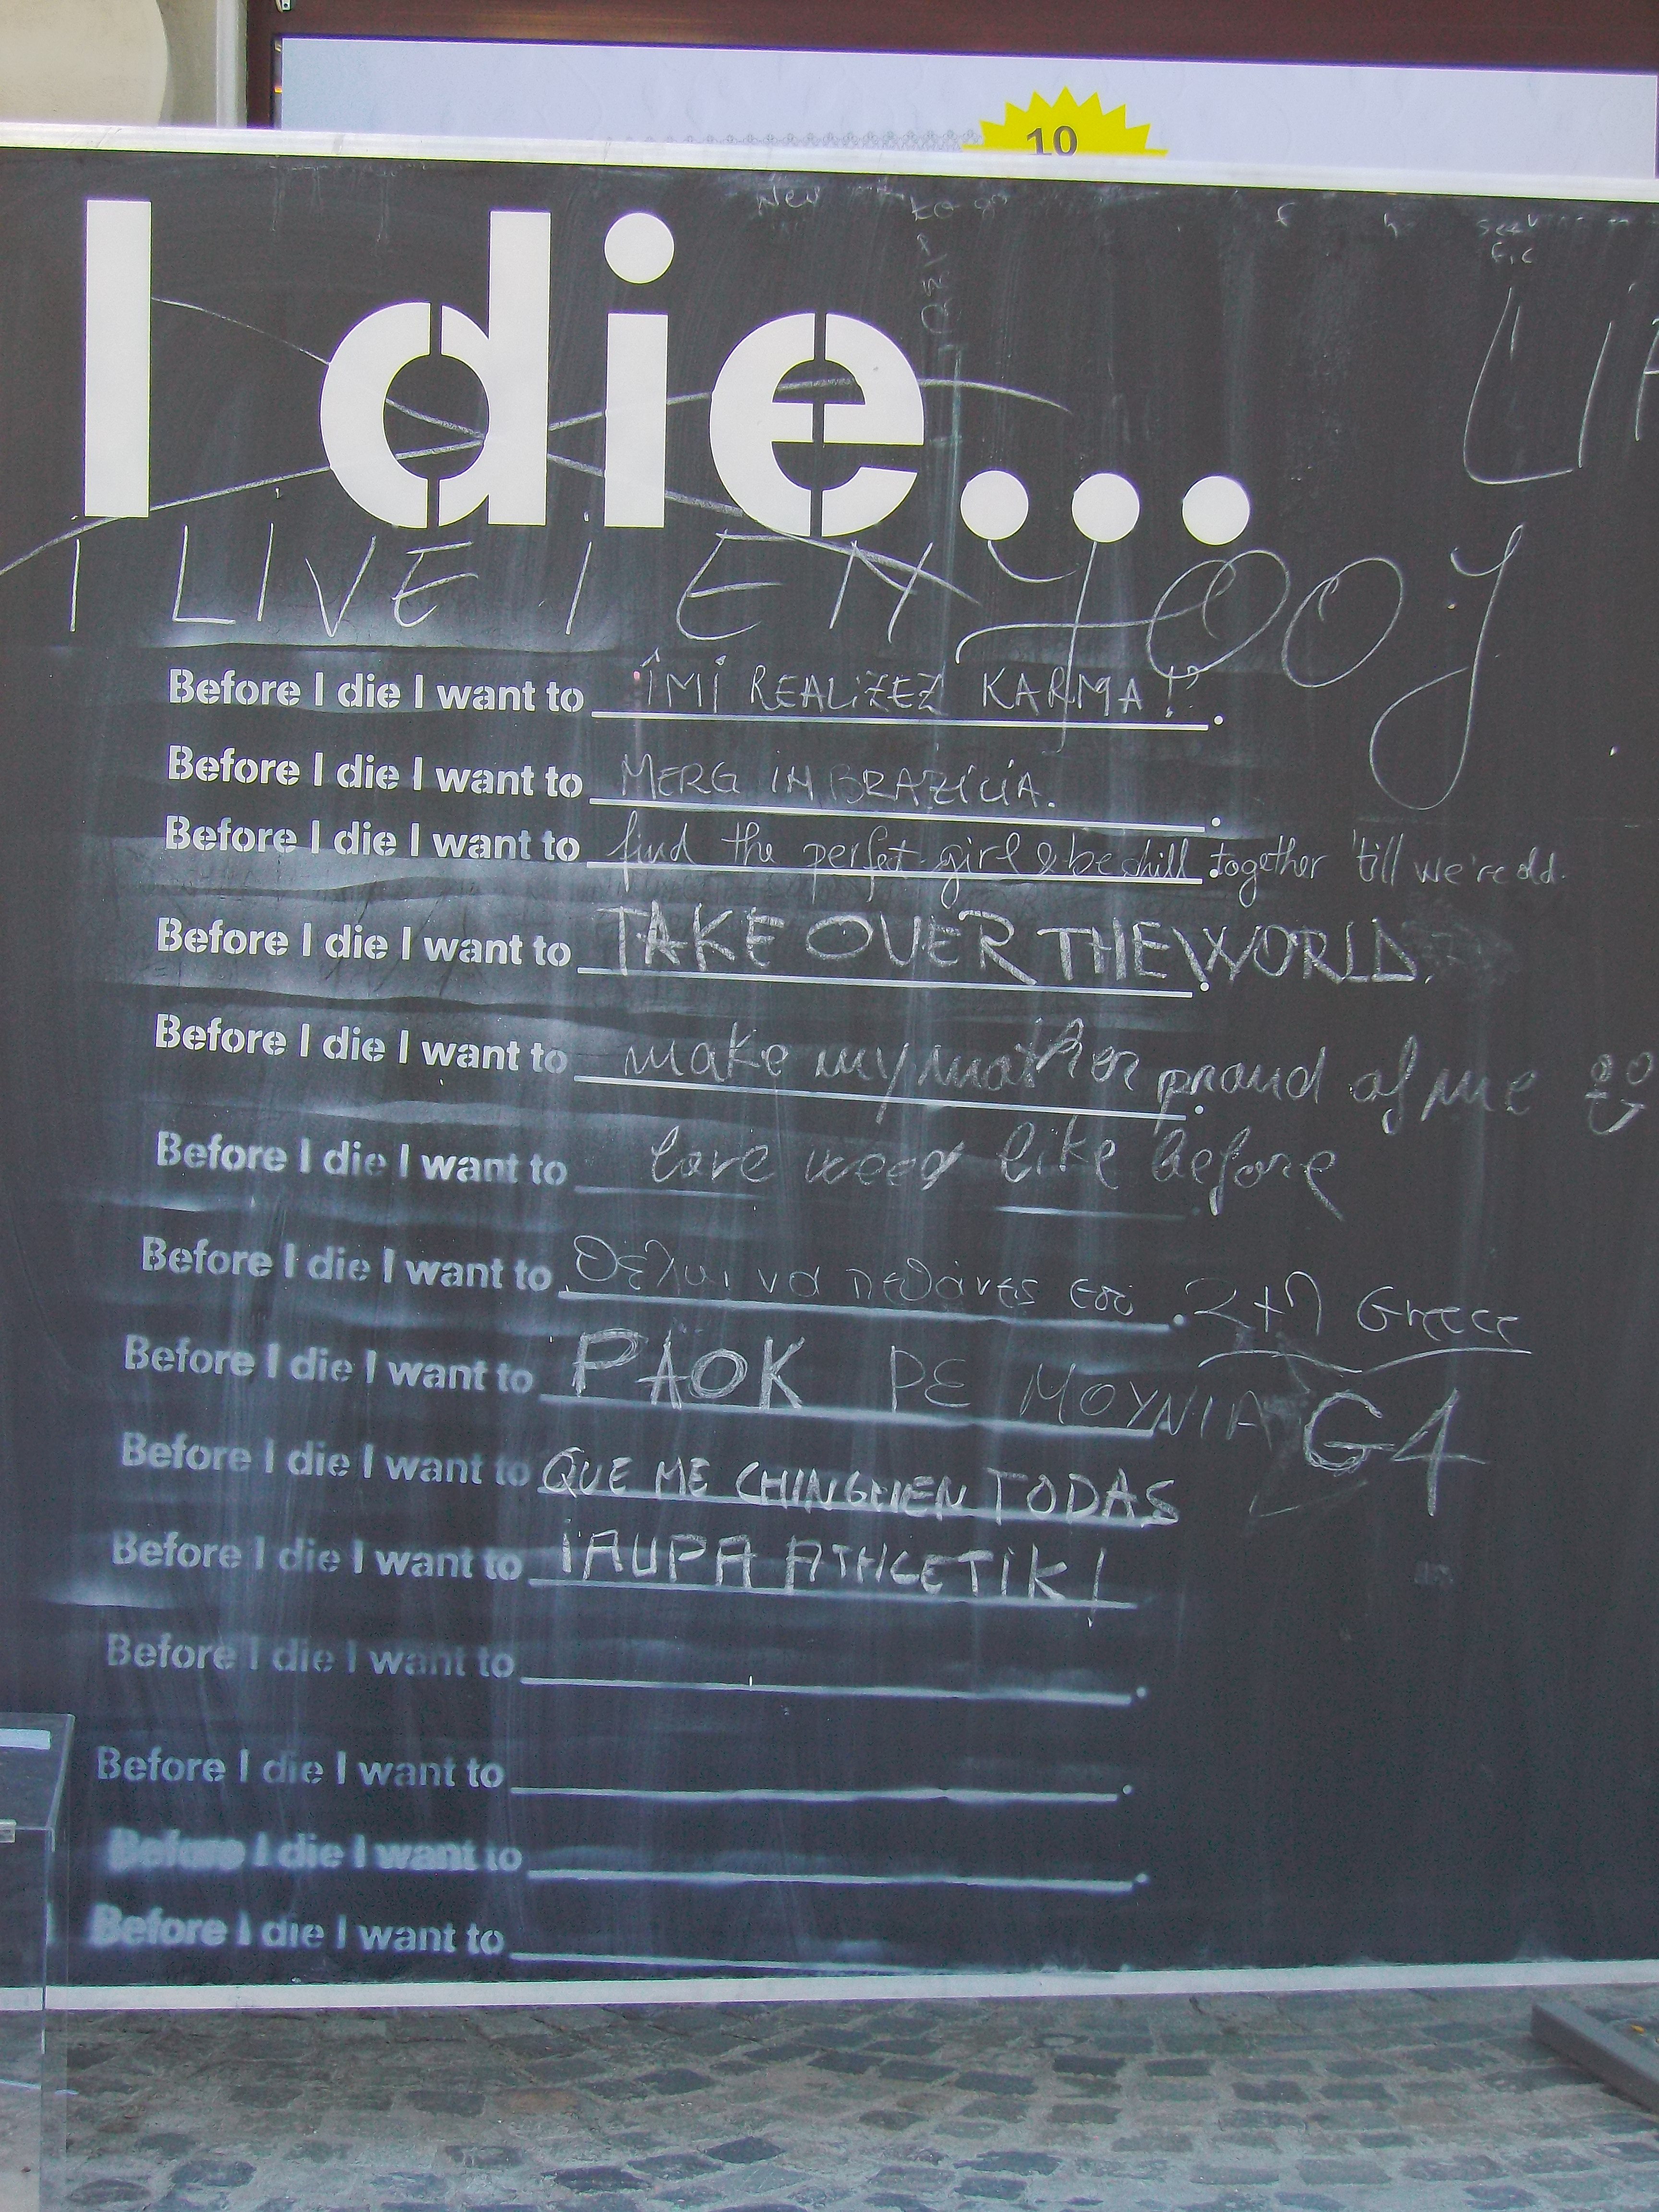 10
I die...
LIF
I LIVE I ENJOOY
Before I die I want to ÎMI REALIZEZ KARMA!
Before I die I want to MERG IN BRAZILIA.
Before I die I want to find the perfet girl & be chill together 'till we're old.
Before I die I want to TAKE OVER THE WORLD.
Before I die I want to make my mather proud of me
Before I die I want to love weed like before
Before I die I want to να πεθάνεις εσύ. Greece
Before I die I want to PAOK ΡΕ ΜΟΥΝΙΑ G4
Before I die I want to QUE ME CHINGUEN TODAS
Before I die I want to ¡AUPA ATHLETIK!
Before I die I want to
Before I die I want to
Before I die I want to
Before I die I want to